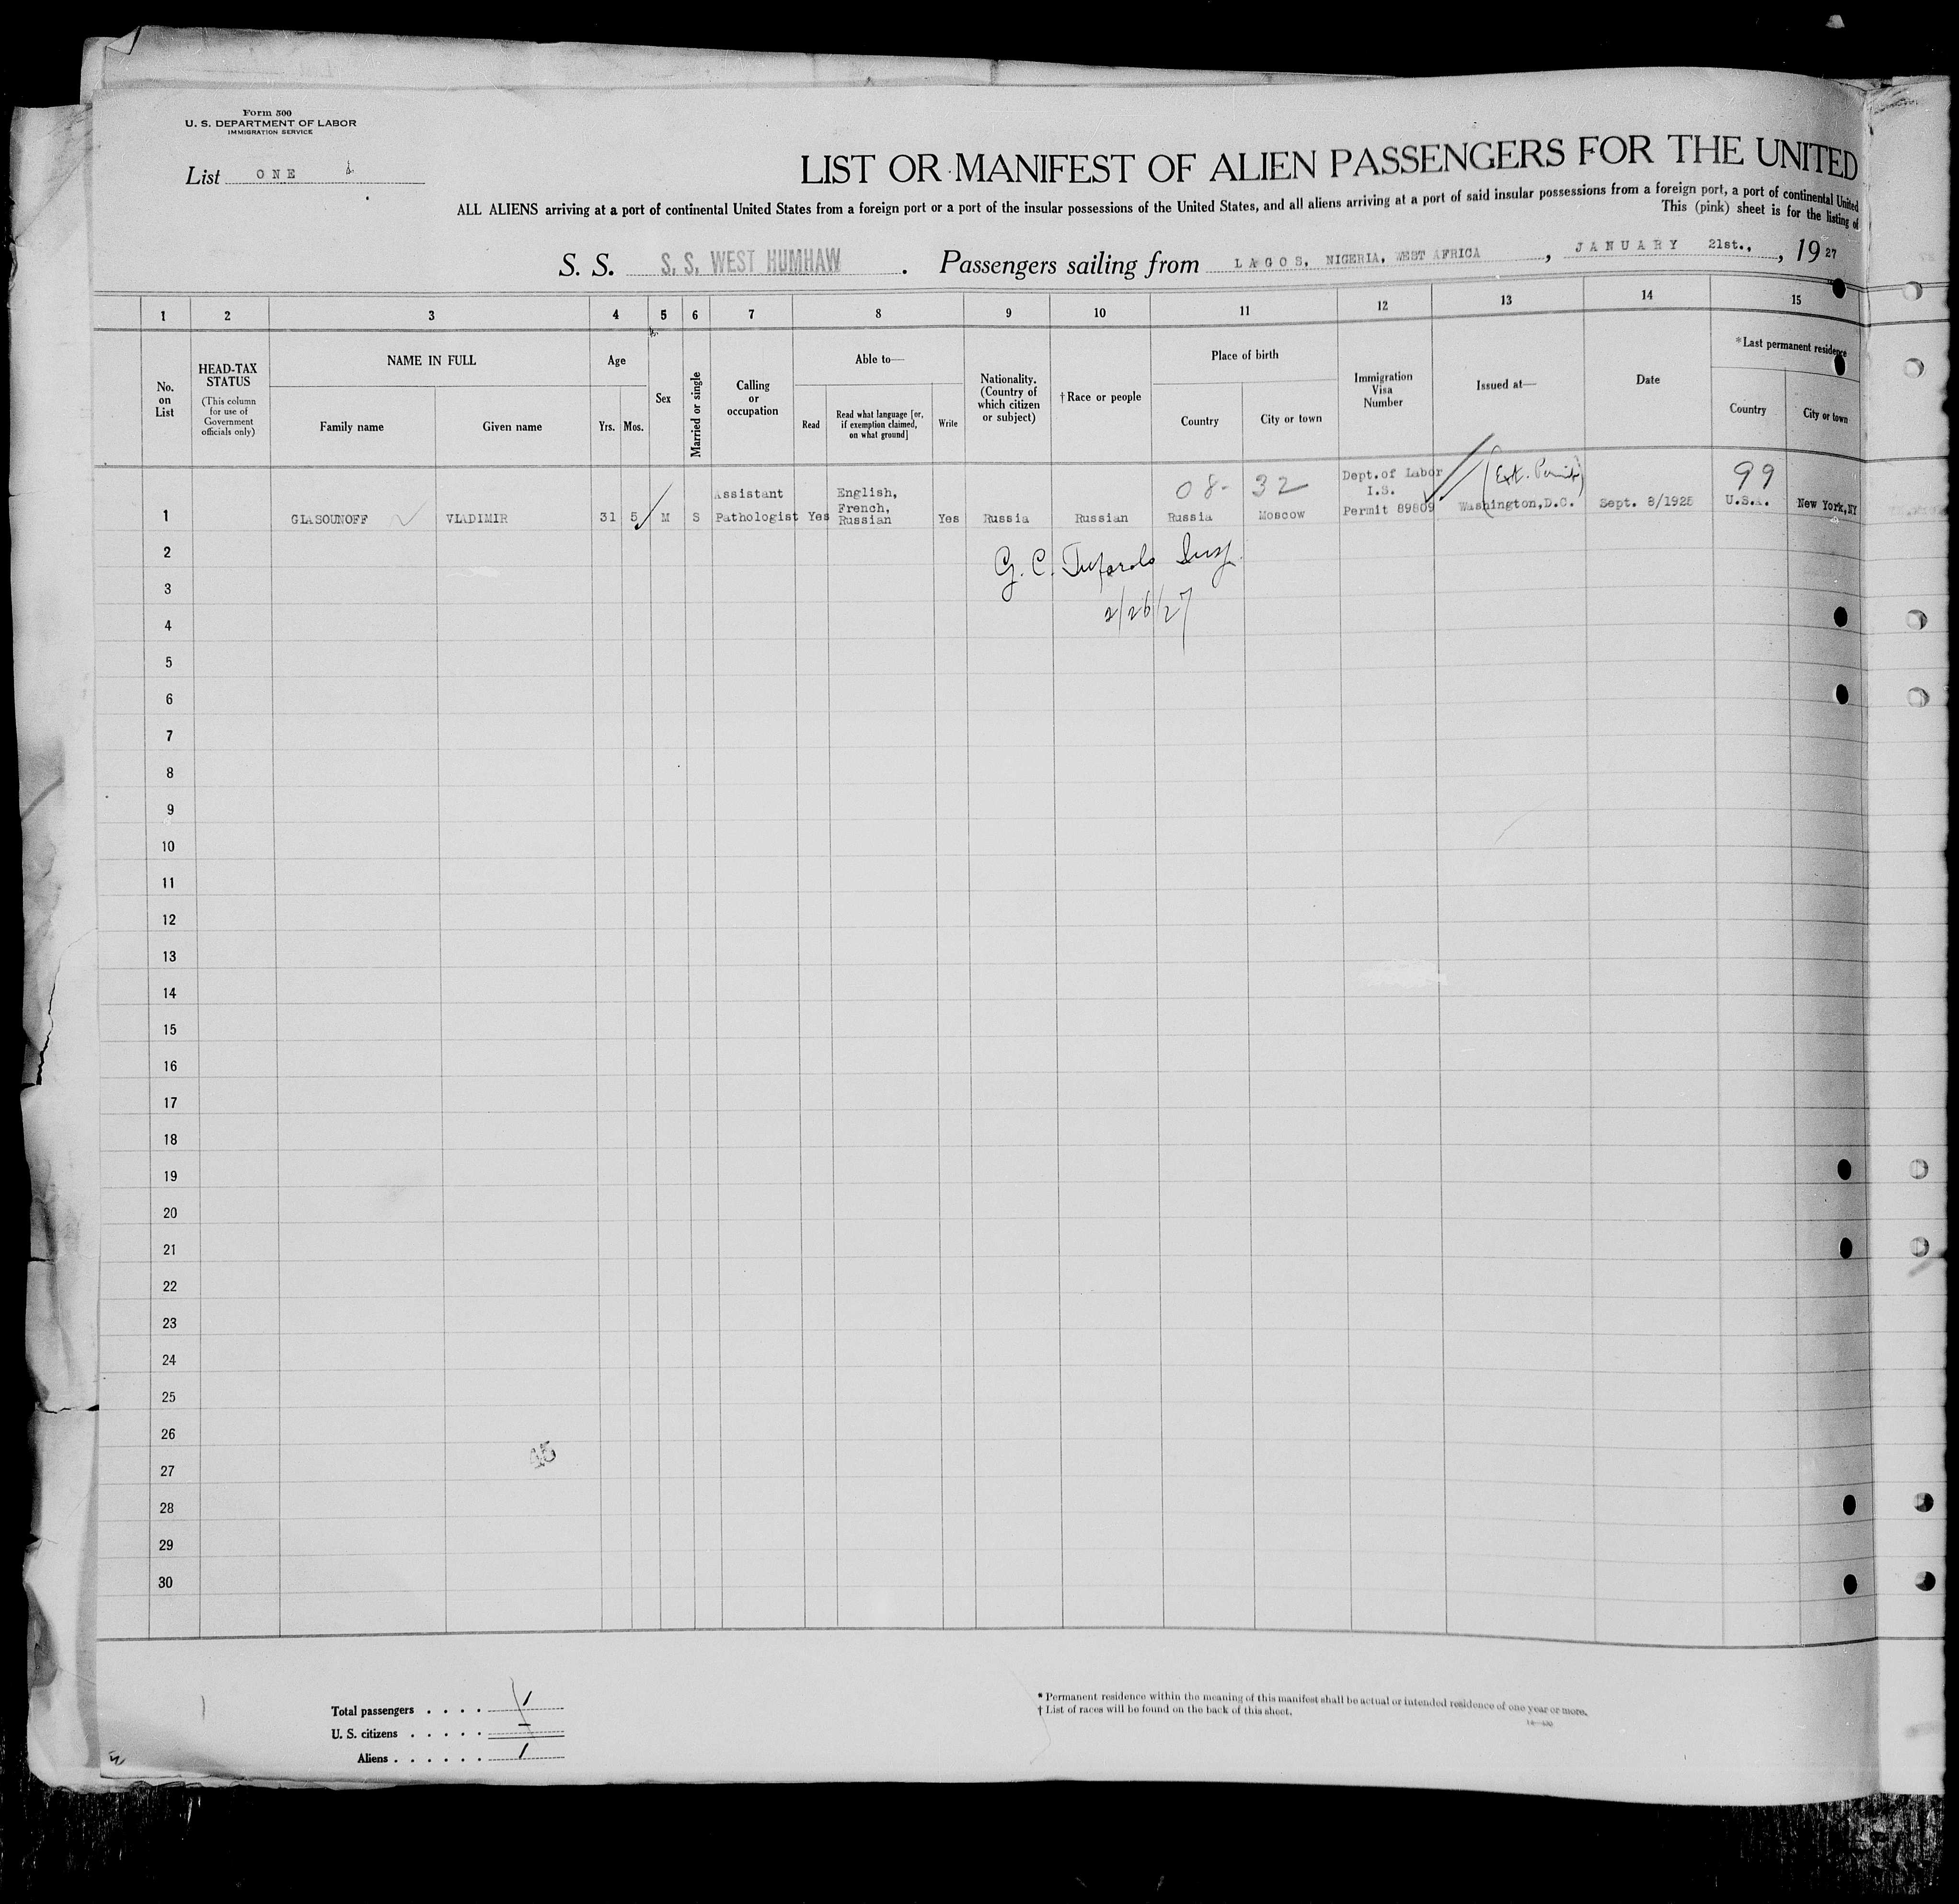 Form 500
U. S. DEPARTMENT OF LABOR
IMMIGRATION SERVICE
List ONE
LIST OR MANIFEST OF ALIEN PASSENGERS FOR THE UNITED
ALL ALIENS arriving at a port of continental United States from a foreign port or a port of the insular possessions of the United States, and all aliens arriving at a port of said insular possessions from a foreign port, a port of continental United
This (pink) sheet is for the listing of
S. S. S. S. WEST HUMHAW . Passengers sailing from LAGOS, NIGERIA, WEST AFRICA , JANUARY 21st., , 1927
1 2 3 4 5 6 7 8 9 10 11 12 13 14 15
No. on List
HEAD-TAX STATUS
(This column for use of Government officials only)
NAME IN FULL
Family name
Given name
Age
Yrs.
Mos.
Sex
Married or single
Calling or occupation
Able to—
Read
Read what language [or, if exemption claimed, on what ground]
Write
Nationality. (Country of which citizen or subject)
† Race or people
Place of birth
Country
City or town
Immigration Visa Number
Issued at—
Date
*Last permanent residence
Country
City or town
1 GLASOUNOFF VLADIMIR 31 5 M S Assistant Pathologist Yes English, French, Russian Yes Russia Russian Russia Moscow Dept.of Labor I.S. Permit 89809 Washington,D.C. Sept. 8/1925 U.S.A. New York,NY
08- 32
(Ext. Permit)
99
2
G. C.
3
2/26/27
4
5
6
7
8
9
10
11
12
13
14
15
16
17
18
19
20
21
22
23
24
25
26
27
28
29
30
Total passengers . . . . 1
U. S. citizens . . . . . –
Aliens . . . . . . 1
* Permanent residence within the meaning of this manifest shall be actual or intended residence of one year or more.
† List of races will be found on the back of this sheet.